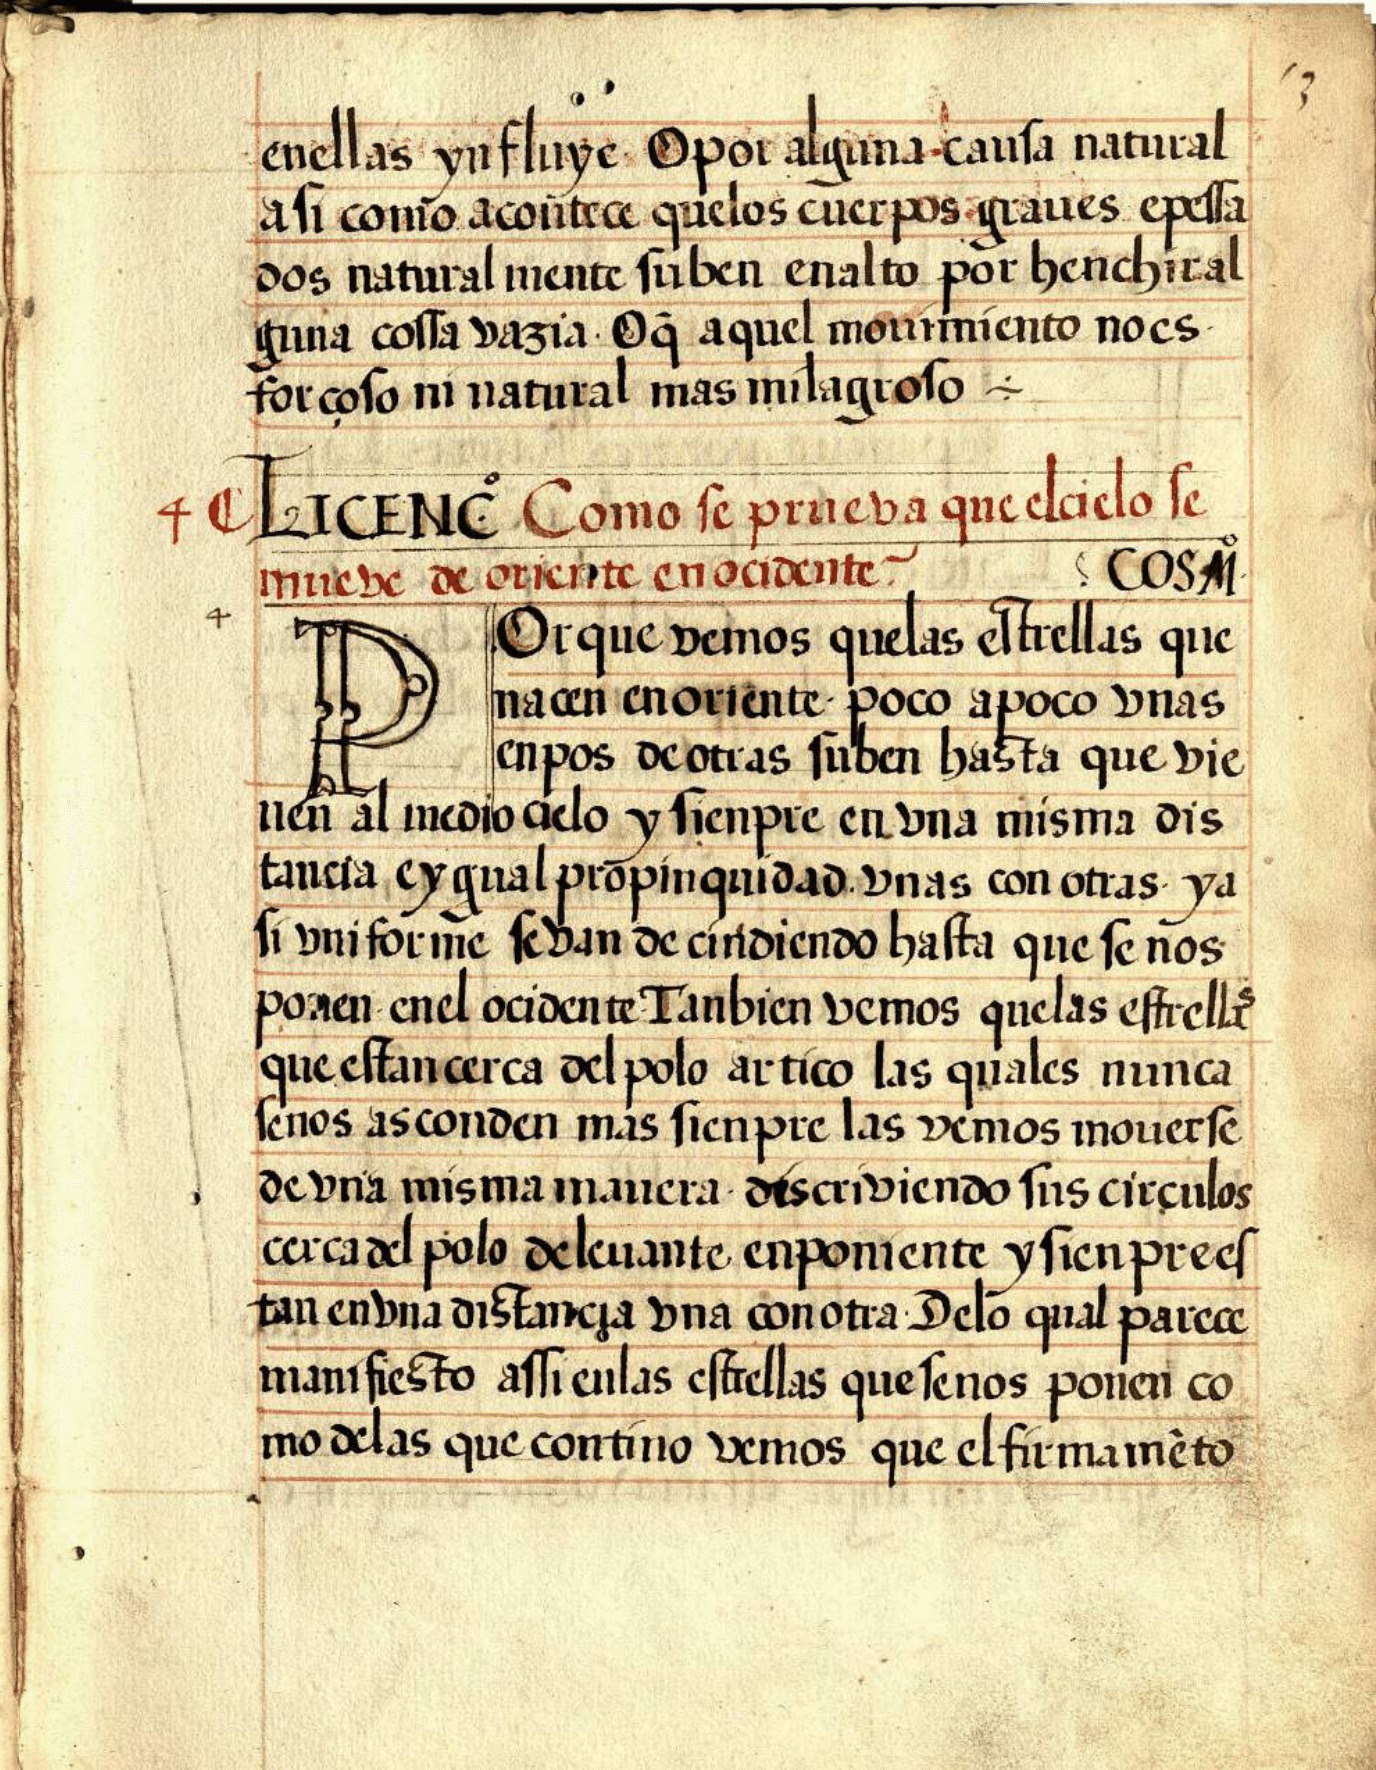 13
enellas ynfluye. O por alguna causa natural
asi como acontece quelos cuerpos graues epessa
dos natural mente suben enalto por henchir al
guna cossa vazia. Oq̃ aquel mouimiento noes
forçoso ni natural mas milagroso ÷
4 ¶ LICENCº Como se prueva que elcielo se
mueve de oriente en ocidente? COSMº
4
POrque vemos quelas estrellas que
nacen en oriente. poco apoco vnas
enpos de otras suben hasta que vie
nen al medio cielo y sienpre en vna misma dis
tancia eygual propinquidad. vnas con otras. ya
si vniforme se van decindiendo hasta que se nos
ponen enel ocidente Tanbien vemos quelas estrellas
que estan cerca del polo artico las quales nunca
senos asconden mas sienpre las vemos mouerse
de vna misma manera. discriviendo sus circulos
cerca del polo deleuante enponiente y sienpre es
tan en vna distancia vna con otra. Delo qual parece
manifiesto assi enlas estrellas que senos ponen co
mo delas que contino vemos que el firmamẽto